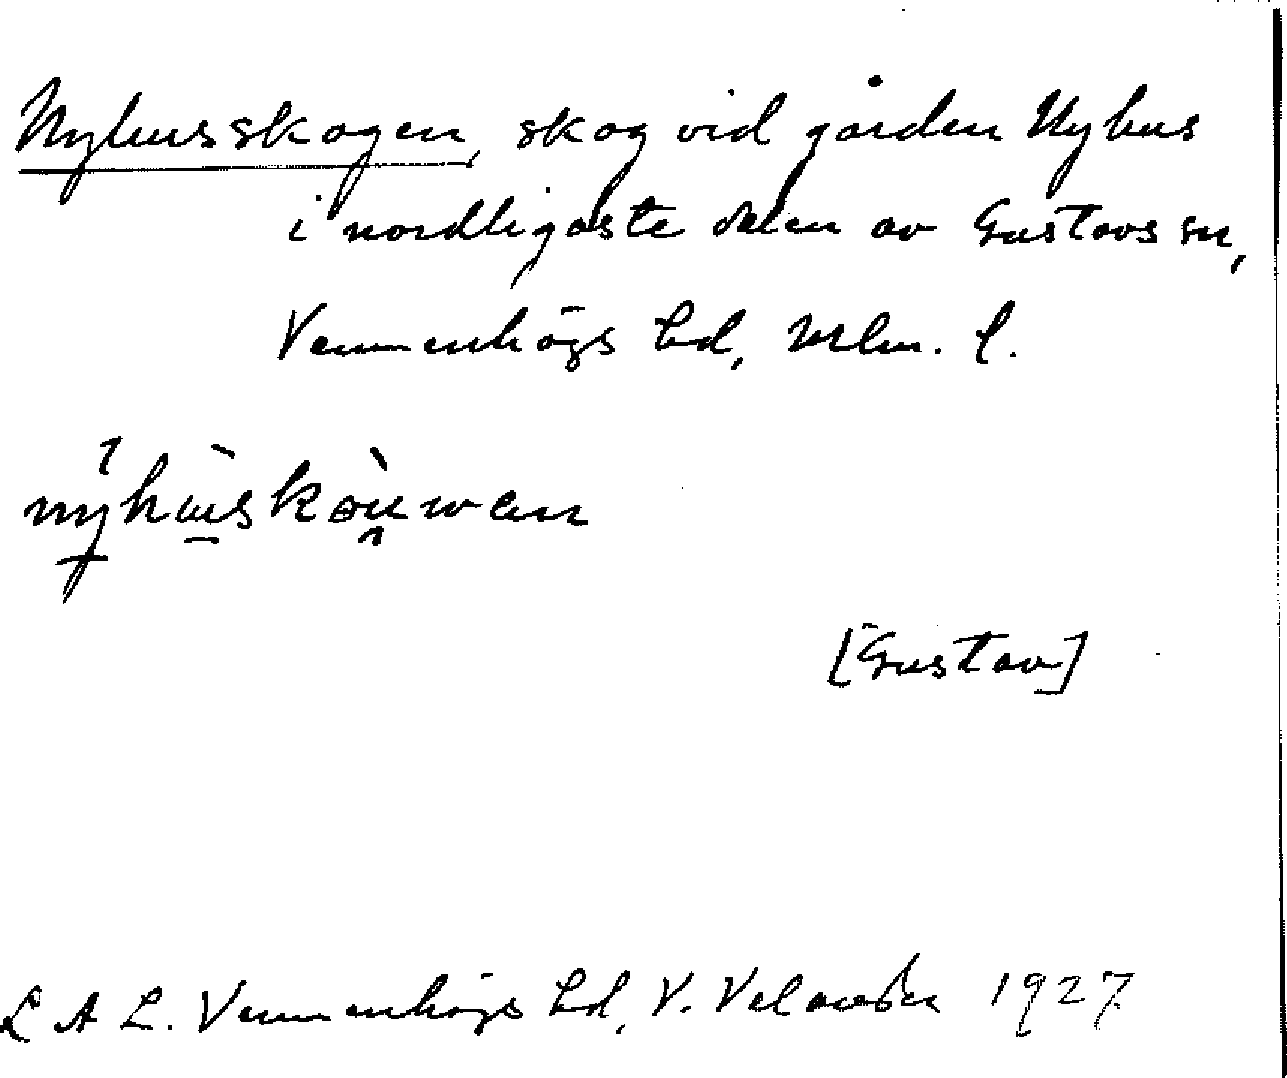 Nyhusskogen, skog vid gården Nyhus
i nordligaste delen av Gustavs sn,
Vemmenhögs hd, Mlm. l.
nýhùskòuwen
[Gustav]
L A L. Vemmenhögs hd, V. Velander 1927